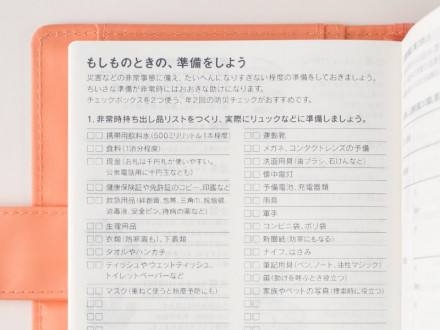 もしものときの、準備をしよう
災害などの非常事態に備え、たいへんになりすぎない程度の準備をしておきましょう。
ちいさな準備が非常時にはおおきな助けになります。
チェックボックスを2つ使う、年2回の防災チェックがおすすめです。
1. 非常時持ち出し品リストをつくり、実際にリュックなどに準備しましょう。
□□ 携帯用飲料水(500ミリリットル1本程度)
□□ 食料(1泊分程度)
□□ 現金(お札は千円札が使いやすい。
公衆電話用に十円玉なども)
□□ 健康保険証や免許証のコピー、印鑑など
□□ 救急用品(絆創膏、包帯、三角巾、脱脂綿、
消毒液、安全ピン、持病の薬など)
□□ 生理用品
□□ 衣類(防寒着も)、下着類
□□ タオルやハンカチ
□□ ティッシュやウェットティッシュ、
トイレットペーパーなど
□□ マスク(重ねて使うと粉塵予防にも)
□□
□□
□□ 運動靴
□□ メガネ、コンタクトレンズの予備
□□ 洗面用具(歯ブラシ、石けんなど)
□□ 懐中電灯
□□ 予備電池、充電器類
□□ 雨具
□□ 軍手
□□ コンビニ袋、ポリ袋
□□ 新聞紙(防寒にもなる)
□□ ナイフ、はさみ
□□ 筆記用具(ペン、ノート、油性マジック)
□□ 笛(助けを呼ぶとき役立つ)
□□ 家族やペットの写真(捜索時に役立つ)
□□
□□